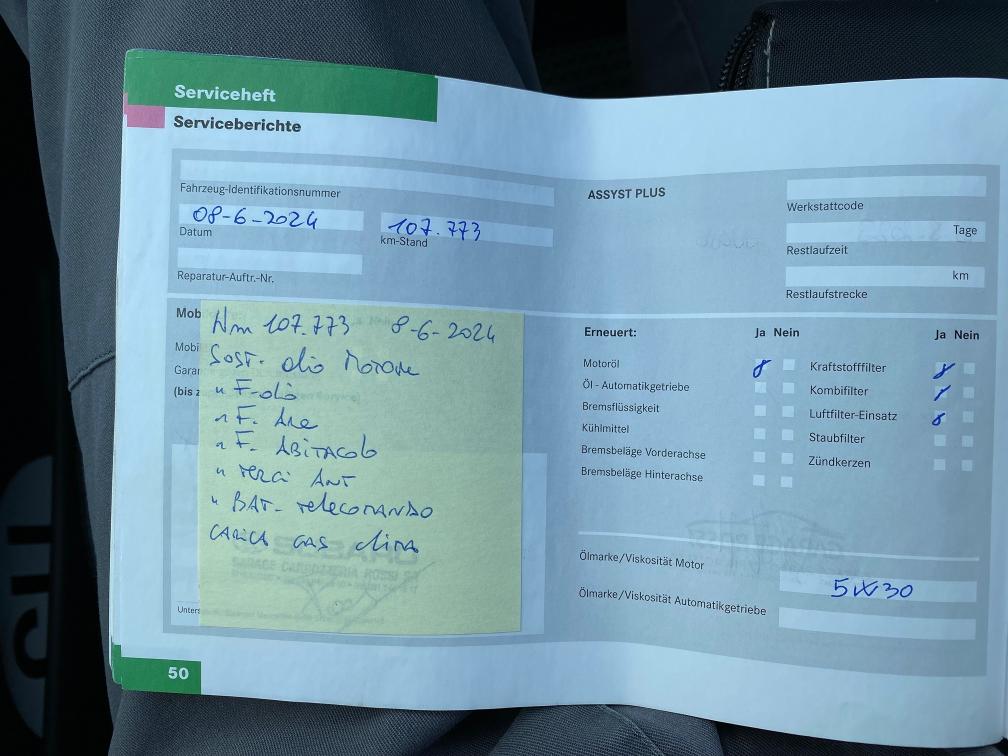 Serviceheft
Serviceberichte
Fahrzeug-Identifikationsnummer
08-6-2024
Datum
107.773
km-Stand
Reparatur-Auftr.-Nr.
ASSYST PLUS
Werkstattcode
Tage
Restlaufzeit
km
Restlaufstrecke
Mob
Mobi
Garar
(bis z
Km 107.773 8-6-2024
Sost. olio Motore
" F-olio
" F. Aria
" F. ABITACOLO
" FRENI ANT
" BAT- TELECOMANDO
CARICA GAS CLIMA
Unters
Erneuert:
Ja Nein
Motoröl
Öl - Automatikgetriebe
Bremsflüssigkeit
Kühlmittel
Bremsbeläge Vorderachse
Bremsbeläge Hinterachse
Ja Nein
Kraftstofffilter
Kombifilter
Luftfilter-Einsatz
Staubfilter
Zündkerzen
Ölmarke/Viskosität Motor
5W30
Ölmarke/Viskosität Automatikgetriebe
50